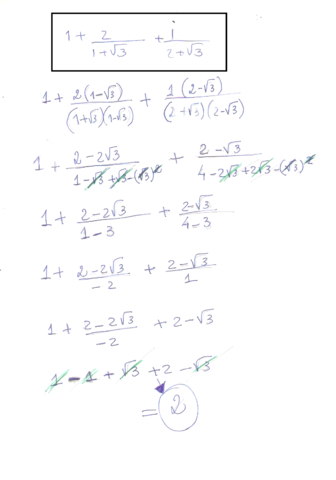 1 + 2/(1+√3) + 1/(2+√3)
1 + 2(1-√3)/((1+√3)(1-√3)) + 1(2-√3)/((2+√3)(2-√3))
1 + (2-2√3)/(1-√3+√3-(√3)²) + (2-√3)/(4-2√3+2√3-(√3)²)
1 + (2-2√3)/(1-3) + (2-√3)/(4-3)
1 + (2-2√3)/(-2) + (2-√3)/1
1 + (2-2√3)/(-2) + 2-√3
1 - 1 + √3 + 2 - √3
= 2